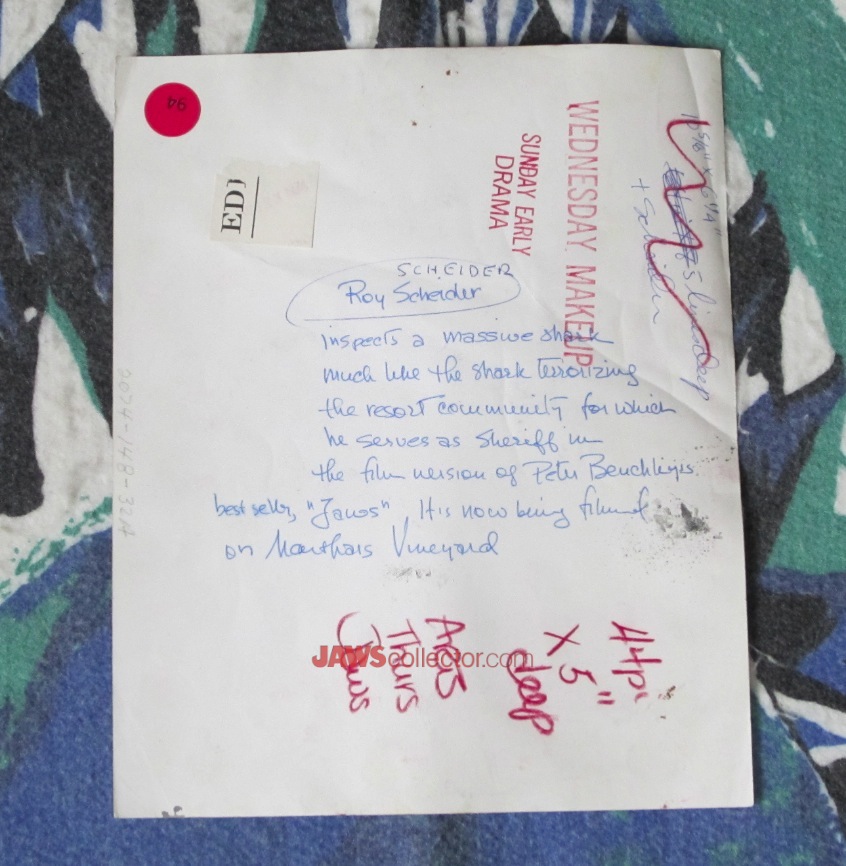 94
ED]
WEDNESDAY MAKEUP
SUNDAY EARLY
DRAMA
10 5/8" x 6 1/4"
5 lines deep
+ Scheider
SCHEIDER
Roy Scheider
inspects a massive shark
much like the shark terrorizing
the resort community for which
he serves as sheriff in
the film version of Peter Benchley's
best seller, "Jaws". It is now being filmed
on Martha's Vineyard
2074-148-32A
44pi
x 5"
deep
Arts
Thurs
Jaws
JAWScollector.com